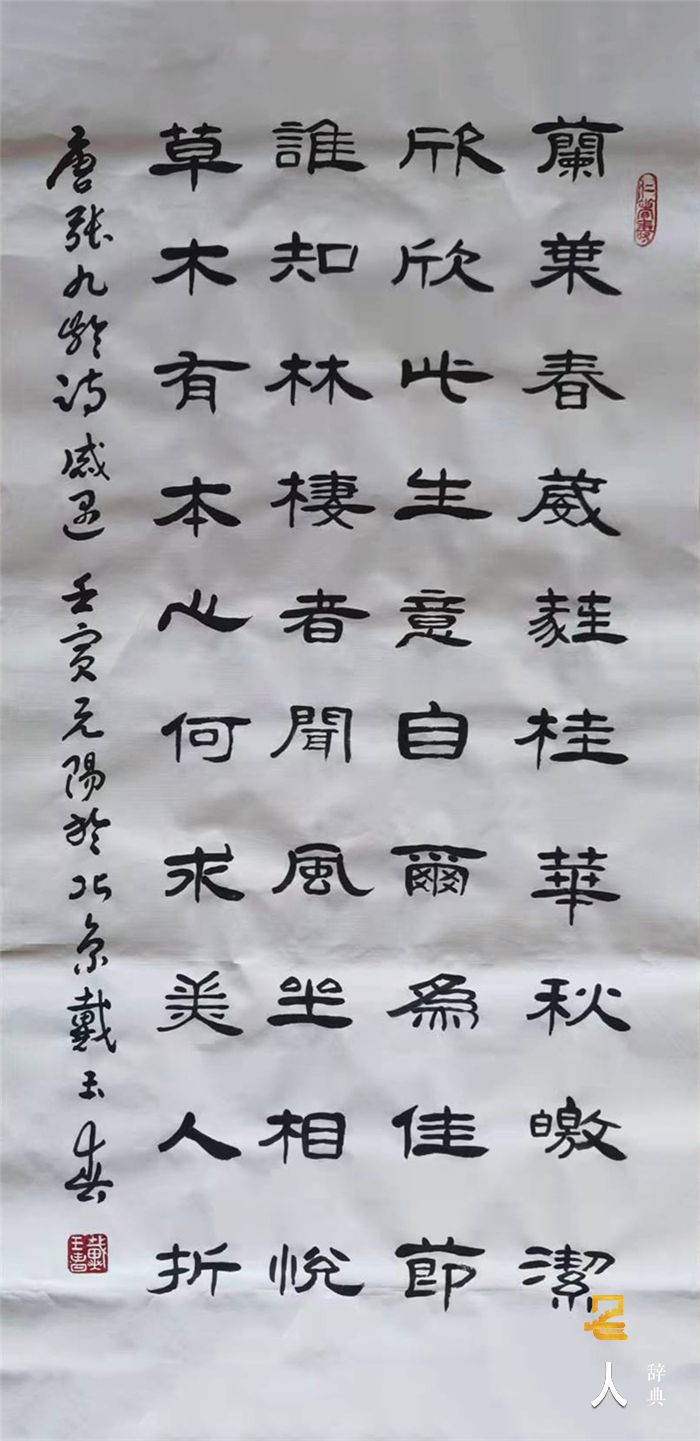 仁者壽
蘭葉春葳蕤桂華秋皦潔
欣欣此生意自爾為佳節
誰知林棲者聞風坐相悅
草木有本心何求美人折
唐張九齡詩感遇 壬寅元陽於北京戴玉春
戴玉春
名人辞典